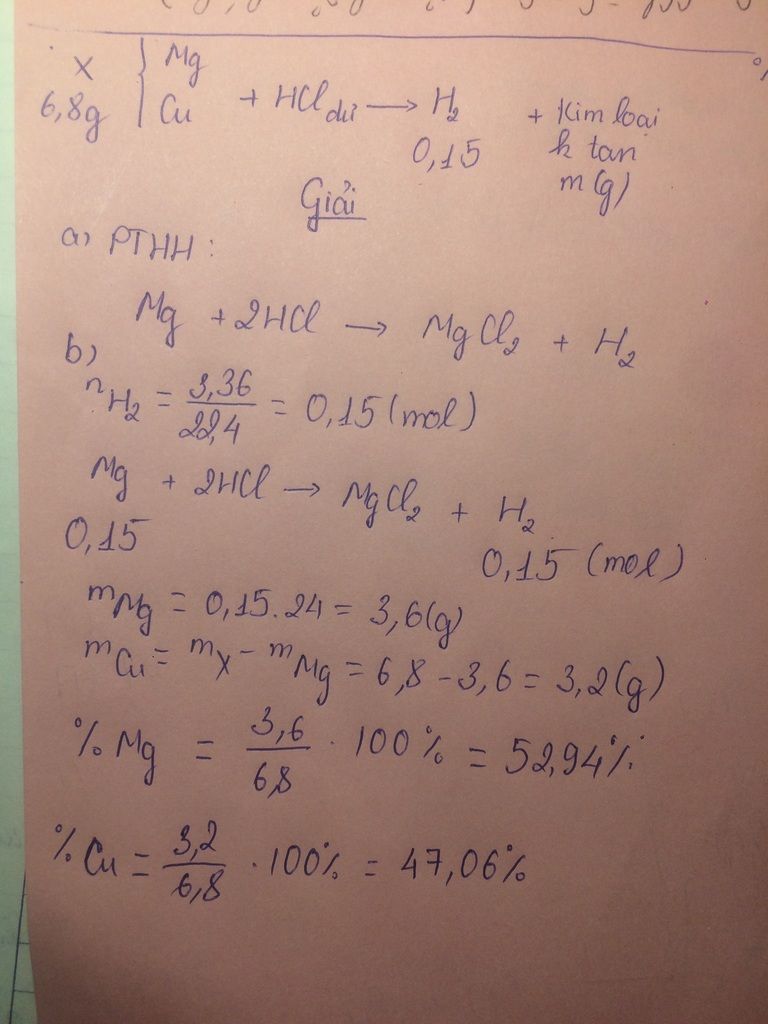 X { Mg
6,8g Cu + HCl dư → H₂ + Kim loại
0,15 k tan
m(g)
Giải
a) PTHH:
Mg + 2HCl → MgCl₂ + H₂
b)
nH₂ = 3,36/22,4 = 0,15 (mol)
Mg + 2HCl → MgCl₂ + H₂
0,15 0,15 (mol)
mMg = 0,15.24 = 3,6(g)
mCu = mX - mMg = 6,8 - 3,6 = 3,2(g)
% Mg = 3,6/6,8 . 100% = 52,94%
% Cu = 3,2/6,8 . 100% = 47,06%